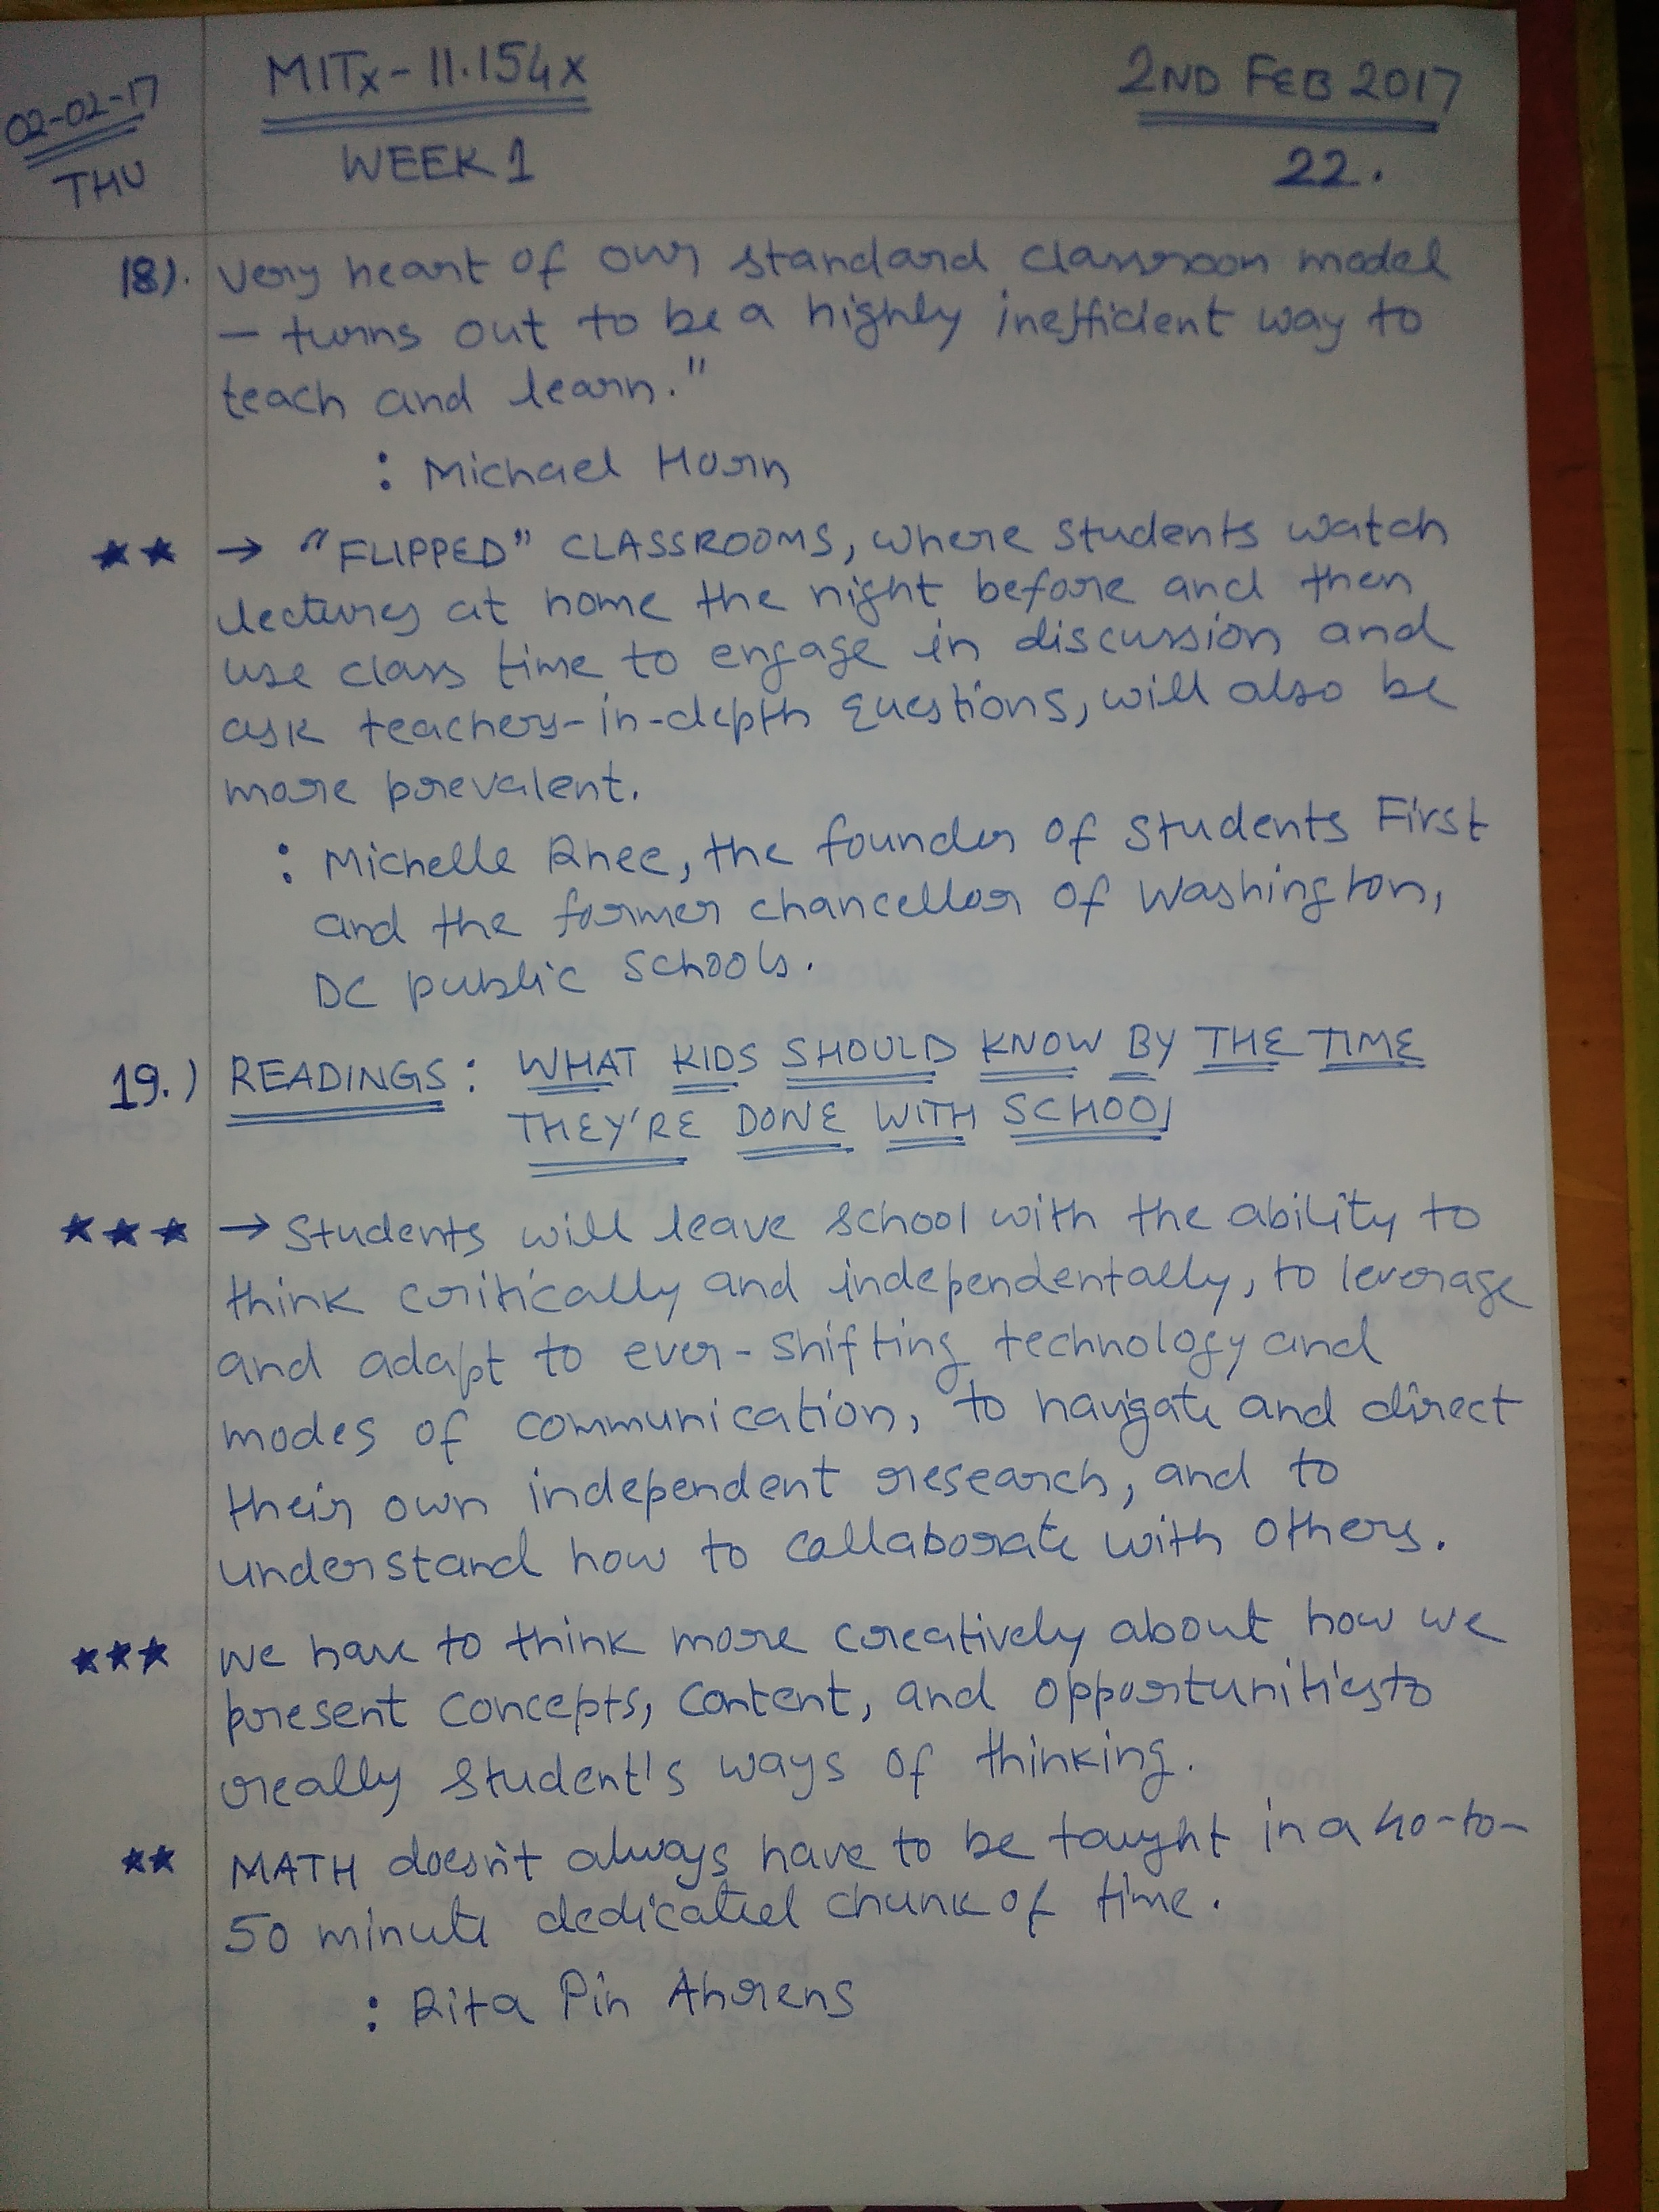 02-02-17
THU
MITx-11.154x
WEEK 1
2ND FEB 2017
22.
18). very heart of our standard classroom model
- turns out to be a highly inefficient way to
teach and learn."
: Michael Horn
★★ → "FLIPPED" CLASSROOMS, where students watch
lectures at home the night before and then
use class time to engage in discussion and
ask teachers-in-depth questions, will also be
more prevalent.
: Michelle Rhee, the founder of Students First
and the former chancellor of Washington,
DC public schools.
19.) READINGS: WHAT KIDS SHOULD KNOW BY THE TIME
THEY'RE DONE WITH SCHOOL
★★★ → Students will leave school with the ability to
think critically and independentally, to leverage
and adapt to ever-shifting technology and
modes of communication, to navigate and direct
their own independent research, and to
understand how to collaborate with others.
★★★ We have to think more creatively about how we
present concepts, content, and opportunities to
really student's ways of thinking.
★★ MATH doesn't always have to be taught in a 40-to-
50 minute dedicated chunk of time.
: Rita Pin Ahrens